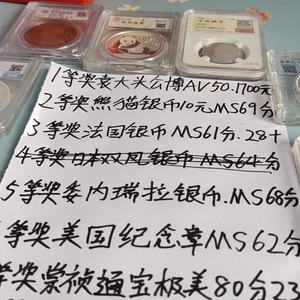 1等奖袁大头公博AV50.1100元
2等奖熊猫银币10元MS69分
3等奖法国银币MS61分.28+
4等奖日本双凤银币MS64分
5等奖委内瑞拉银币.MS68分
等奖美国纪念章MS62分
等奖崇祯通宝极美80分23